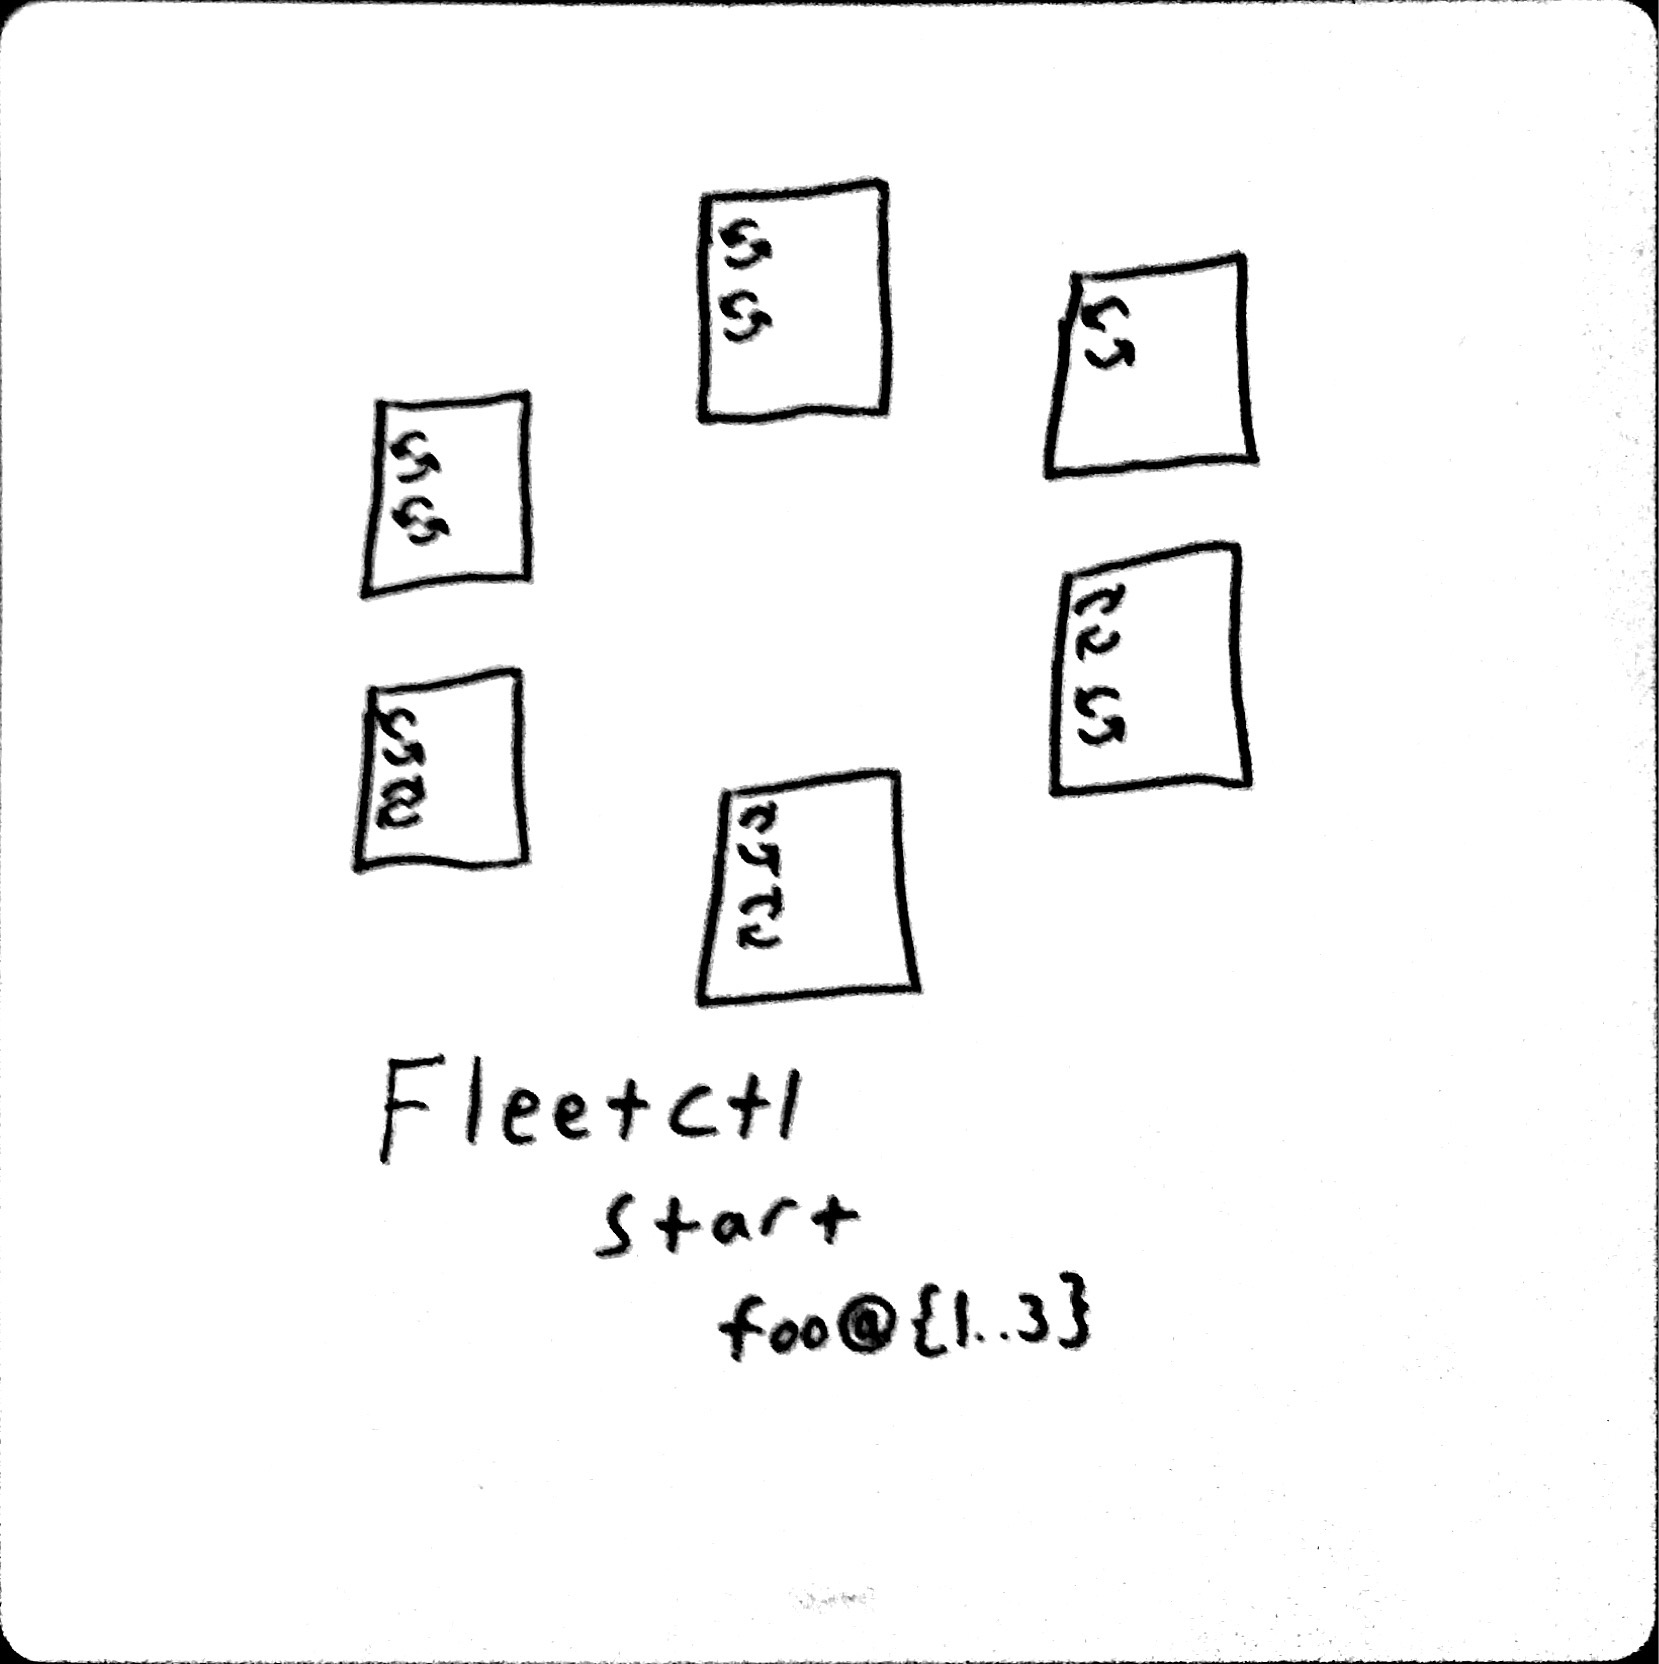 Fleetctl
start
foo@{1..3}